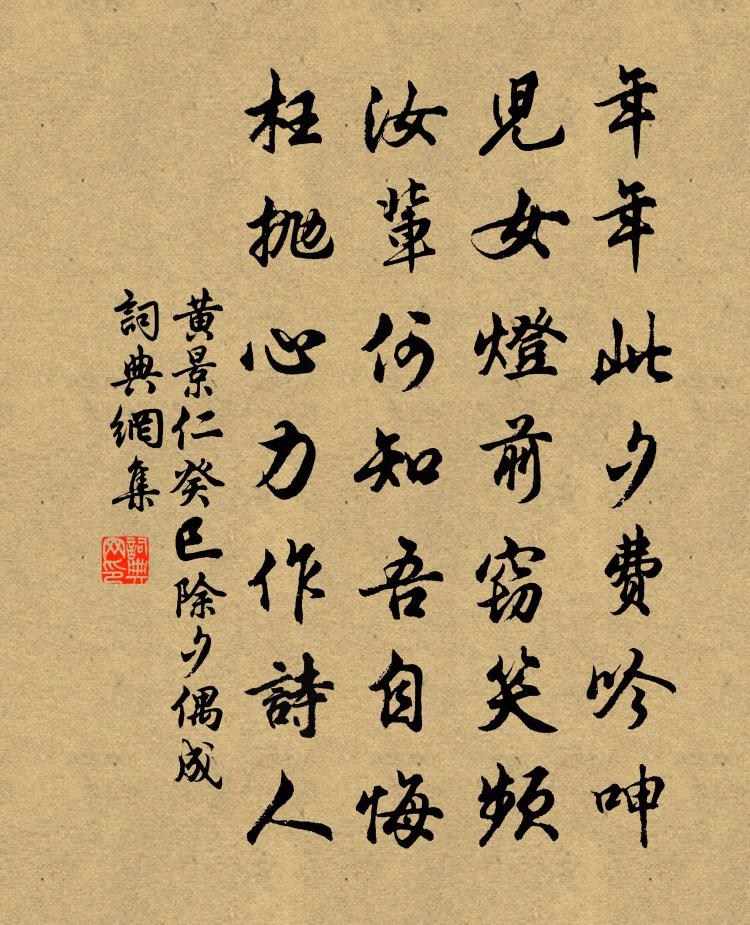 年年此夕費吟呻
兒女燈前窈笑頻
汝輩何知吾自悔
枉抛心力作詩人
黃景仁癸巳除夕偶成
詞典網集
詞典网印